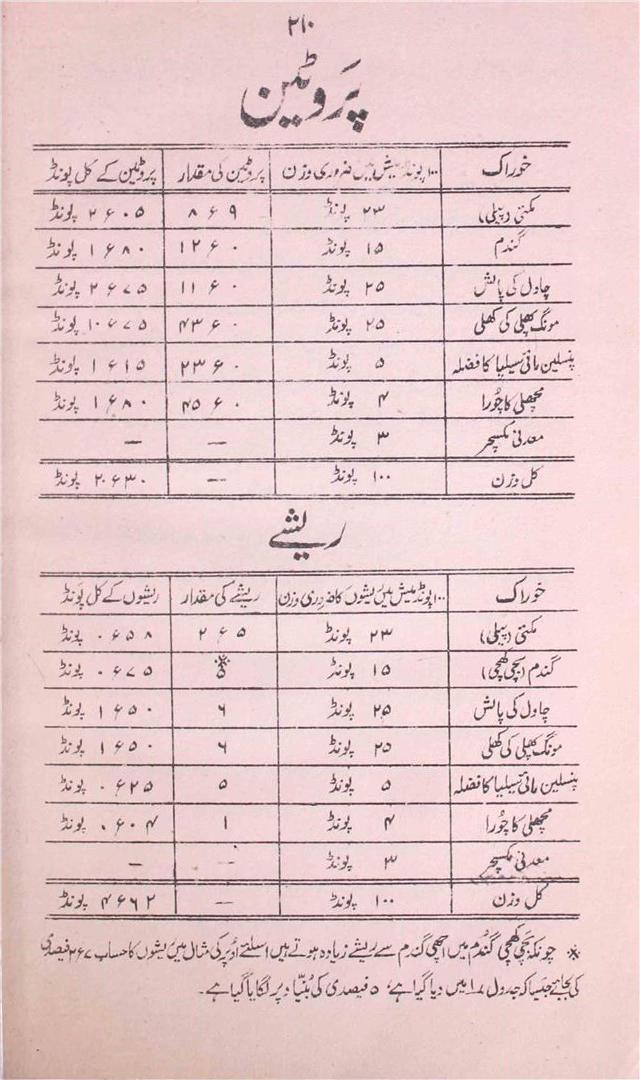 ۲۱۰
پروٹین
خوراک ۱۰۰ پونڈ میش میں ضروری وزن پروٹین کی مقدار پروٹین کے کل پونڈ
مکئی (پیلی) ۲۳ پونڈ ۸ ء ۹ ۲ ء ۰۵ پونڈ
گندم ۱۵ پونڈ ۱۲ ء ۰ ۱ ء ۸۰ پونڈ
چاول کی پالش ۲۵ پونڈ ۱۱ ء ۰ ۲ ء ۷۵ پونڈ
مونگ پھلی کی کھلی ۲۵ پونڈ ۴۳ ء ۰ ۱۰ ء ۷۵ پونڈ
پنسلین مائی سیلیا کا فضلہ ۵ پونڈ ۲۳ ء ۰ ۱ ء ۱۵ پونڈ
مچھلی کا چُورا ۴ پونڈ ۴۵ ء ۰ ۱ ء ۸۰ پونڈ
معدنی مکسچر ۳ پونڈ — —
کل وزن ۱۰۰ پونڈ — ۲۰ ء ۳۰ پونڈ
ریشے
خوراک ۱۰۰ پونڈ میش میں ریشوں کا ضروری وزن ریشے کی مقدار ریشوں کے کل پونڈ
مکئی (پیلی) ۲۳ پونڈ ۲ ء ۵ ۰ ء ۵۸ پونڈ
گندم (بچی کھچی) ۱۵ پونڈ ۵* ۰ ء ۷۵ پونڈ
چاول کی پالش ۲۵ پونڈ ۶ ۱ ء ۵۰ پونڈ
مونگ پھلی کی کھلی ۲۵ پونڈ ۶ ۱ ء ۵۰ پونڈ
پنسلین مائی سیلیا کا فضلہ ۵ پونڈ ۵ ۰ ء ۲۵ پونڈ
مچھلی کا چُورا ۴ پونڈ ۱ ۰ ء ۰۴ پونڈ
معدنی مکسچر ۳ پونڈ — —
کل وزن ۱۰۰ پونڈ — ۴ ء ۶۲ پونڈ
* چونکہ بچی کھچی گندُم میں اچھی گندم سے ریشے زیادہ ہوتے ہیں اسلئے اُوپر کی مثال میں ریشوں کا حساب ۲ء۷ فیصدی
کی بجائے جیسا کہ جدول ۱۷ میں دیا گیا ہے، ۵ فیصدی کی بُنیاد پر لگایا گیا ہے۔